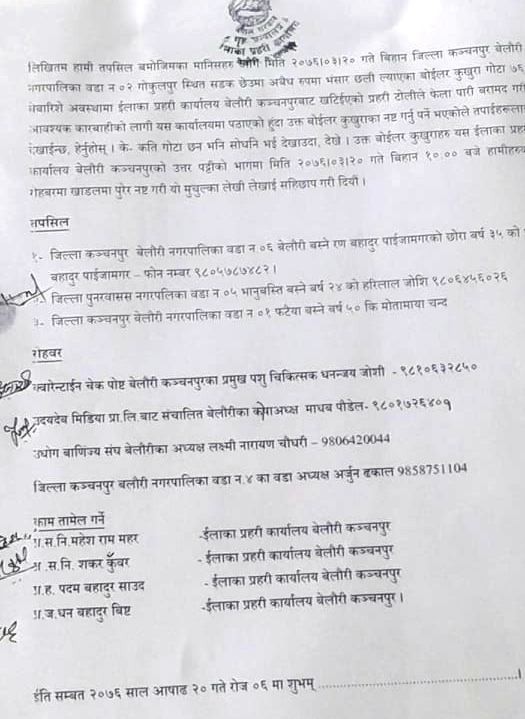 लिखितम हामी तपसिल बमोजिमका मानिसहरु मिति २०७६।०३।२० गते बिहान जिल्ला कञ्चनपुर बेलौरी
नगरपालिका वडा न ०२ गोकुलपुर स्थित सडक छेउमा अबैध रुपमा भंसार छली ल्याएका बोईलर कुखुरा गोटा ७६
बेवारिशे अवस्थामा ईलाका प्रहरी कार्यालय बेलौरी कञ्चनपुरबाट खटिईएको प्रहरी टोलीले फेला पारी बरामद गरी
आवश्यक कारबाहीको लागी यस कार्यालयमा पठाएको हुंदा उक्त बोईलर कुखुराका नष्ट गर्नु पर्ने भएकोले तपाईहरुला
देखाईन्छ, हेर्नुहोस् । के- कति गोटा छन भनि सोधनि भई देखाउदा, देखे । उक्त बोईलर कुखुराहरु यस ईलाका प्रह
कार्यालय बेलौरी कञ्चनपुरको उत्तर पट्टीको भागमा मिति २०७६।०३।२० गते बिहान १०:०० बजे हामीहरु
रोहबरमा खाडलमा पुरेर नष्ट गरी यो मुचुल्का लेखी लेखाई सहिछाप गरी दियौं ।
तपसिल
१- जिल्ला कञ्चनपुर बेलौरी नगरपालिका वडा न ०६ बेलौरी बस्ने रण बहादुर पाईजामगरको छोरा बर्ष ३५ को
बहादुर पाईजामगर – फोन नम्बर ९८०५७८७४८२ ।
जिल्ला पुनरवासस नगरपलिका वडा न ०५ भानुबस्ति बस्ने बर्ष २४ को हरिलाल जोशि ९८०६४५६०२६
३- जिल्ला कञ्चनपुर बेलौरी नगरपालिका वडा न ०१ फटैया बस्ने बर्ष ५० कि मोतामाया चन्द
रोहवर
क्वारेन्टाईन चेक पोष्ट बेलौरी कञ्चनपुरका प्रमुख पशु चिकित्सक धनन्जय जोशी - ९८१०६३२८५०
उदयदेब मिडिया प्रा.लि.बाट संचालित बेलौरीका कोषाअध्यक्ष माधब पौडेल- ९८०१७२६४०१
उधोग बाणिज्य संघ बेलौरीका अध्यक्ष लक्ष्मी नारायण चौधरी – 9806420044
जिल्ला कञ्चनपुर बलौरी नगरपालिका वडा न.४ का वडा अध्यक्ष अर्जुन ढकाल 9858751104
काम तामेल गर्ने
प्र.स.नि.महेश राम महर -ईलाका प्रहरी कार्यालय बेलौरी कञ्चनपुर
प्र.स.नि. शकर कुँवर - ईलाका प्रहरी कार्यालय बेलौरी कञ्चनपुर
प्र.ह. पदम बहादुर साउद - ईलाका प्रहरी कार्यालय बेलौरी कञ्चनपुर
प्र.ज.धन बहादुर बिष्ट -ईलाका प्रहरी कार्यालय बेलौरी कञ्चनपुर ।
ईति सम्बत २०७६ साल आषाढ २० गते रोज ०६ मा शुभम् ..........................................।